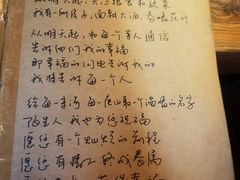 从明天起，关心粮食和蔬菜
我有一所房子，面朝大海，春暖花开
从明天起，和每个亲人通信
告诉他们我的幸福
那幸福的闪电告诉我的
我将告诉每一个人
给每一条河每一座山取个温暖的名字
陌生人 我也为你祝福
愿你有一个灿烂的前程
愿你有情人终成眷属